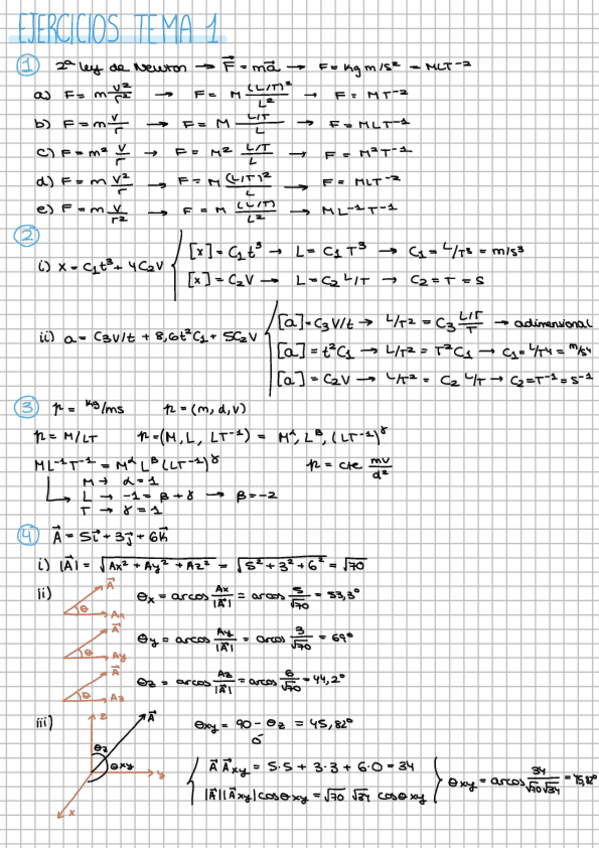 EJERCICIOS TEMA 1
① 2ª ley de Newton → F⃗ = ma⃗ → F = kg m/s² = MLT⁻²
a) F = m v²/r² → F = M (L/T)²/L² → F = MT⁻²
b) F = m v/r → F = M L/T/L → F = MLT⁻¹
c) F = m² v/r → F = M² L/T/L → F = M²T⁻¹
d) F = m v²/r → F = M (L/T)²/L → F = MLT⁻²
e) F = m v/r² → F = M (L/T)/L² → ML⁻¹T⁻¹
②
i) x = C₁t³ + 4C₂v { [x] = C₁t³ → L = C₁T³ → C₁ = L/T³ = m/s³
[x] = C₂v → L = C₂ L/T → C₂ = T = s
ii) a = C₃v/t + 8,6t²C₁ + 5C₂v { [a] = C₃v/t → L/T² = C₃ L/T/T → adimensional
[a] = t²C₁ → L/T² = T²C₁ → C₁ = L/T⁴ = m/s⁴
[a] = C₂v → L/T² = C₂ L/T → C₂ = T⁻¹ = s⁻¹
③ μ = kg/ms μ = (m, d, v)
μ = M/LT μ = (M, L, LT⁻¹) = Mᵅ, Lᵝ, (LT⁻¹)ᵞ
ML⁻¹T⁻¹ = Mᵅ Lᵝ (LT⁻¹)ᵞ μ = cte mv/d²
M → α = 1
L → -1 = β + γ → β = -2
T → γ = 1
④ A⃗ = 5i⃗ + 3j⃗ + 6k⃗
i) |A⃗| = √Ax² + Ay² + Az² = √5² + 3² + 6² = √70
ii) A⃗ θ Ax θx = arcos Ax/|A⃗| = arcos 5/√70 = 53,3°
A⃗ θ Ay θy = arcos Ay/|A⃗| = arcos 3/√70 = 69°
A⃗ θ Az θz = arcos Az/|A⃗| = arcos 6/√70 = 44,2°
iii) z A⃗ θz θxy y x θxy = 90 - θz = 45,82°
ó
{ A⃗ A⃗xy = 5·5 + 3·3 + 6·0 = 34
|A⃗||A⃗xy| cosθxy = √70 √34 cosθxy } θxy = arcos 34/√70√34 = 45,82°